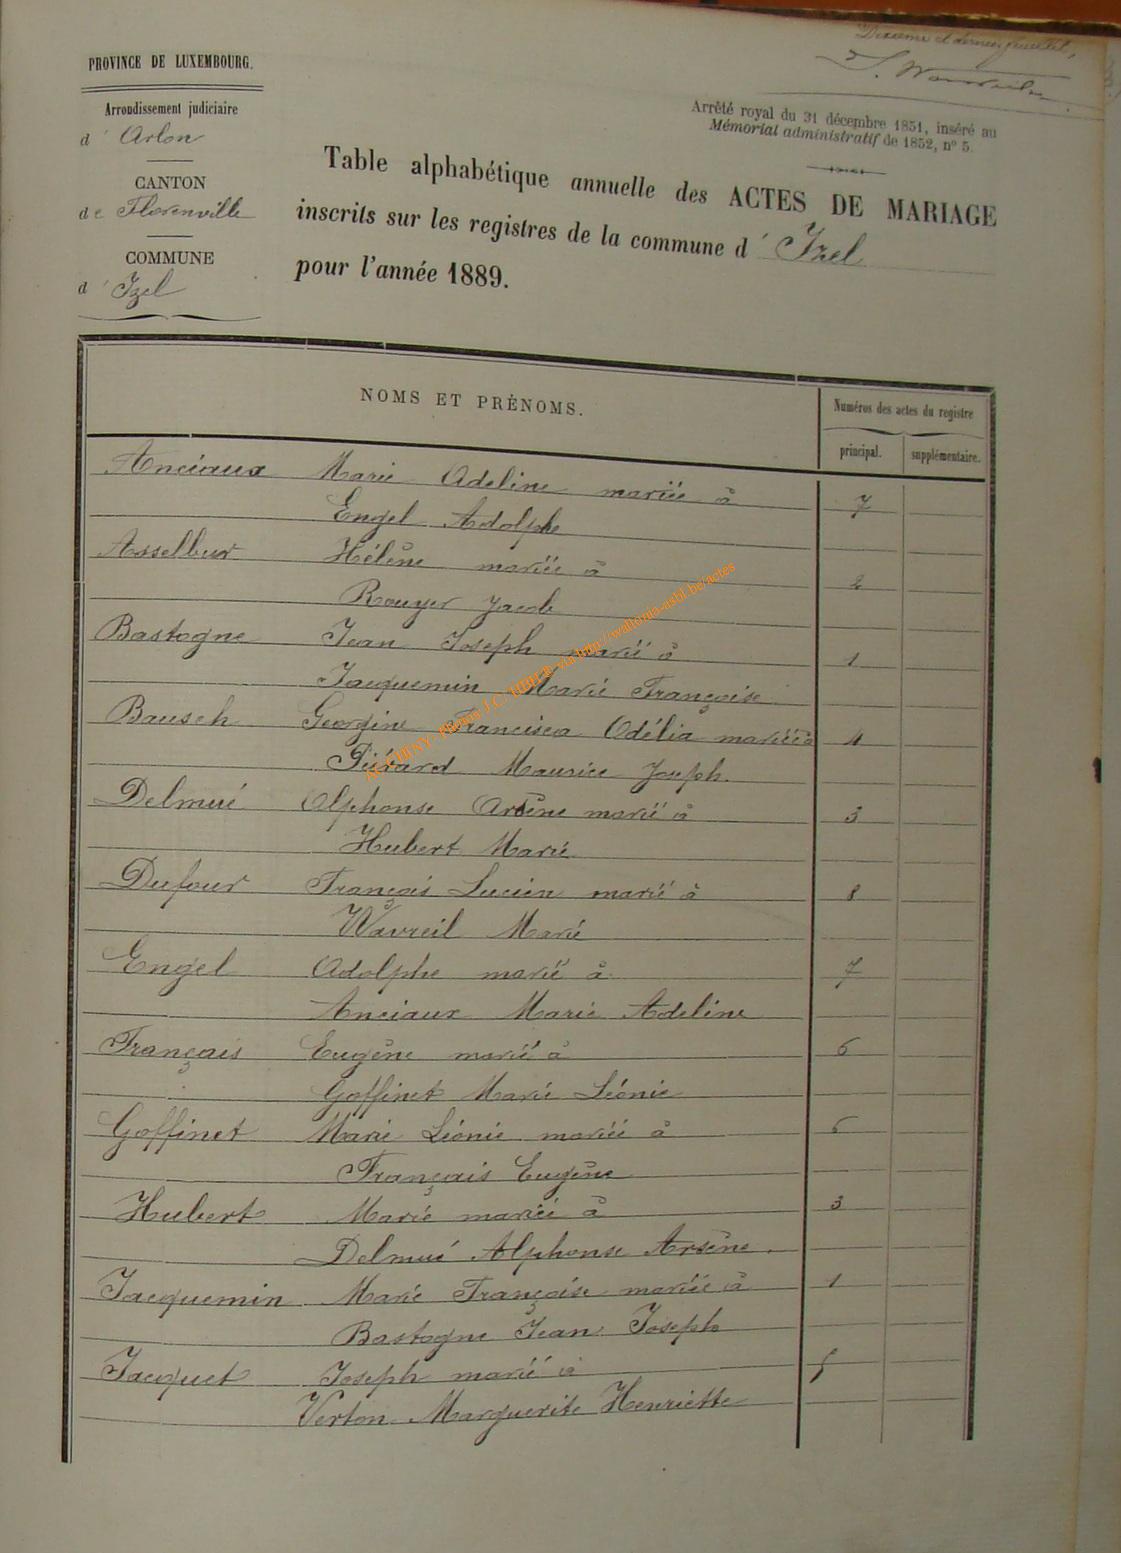 Dixième et dernier feuillet,
PROVINCE DE LUXEMBOURG.
Arrondissement judiciaire
d' Arlon
CANTON
de Florenville
COMMUNE
d' Izel
Arrêté royal du 31 décembre 1851, inséré au
Mémorial administratif de 1852, n° 5.
Table alphabétique annuelle des ACTES DE MARIAGE
inscrits sur les registres de la commune d' Izel
pour l'année 1889.
NOMS ET PRÉNOMS.
Numéros des actes du registre
principal. supplémentaire.
Anciaux Marie Adeline mariée à 7
Engel Adolphe
Asselbur Hélène mariée à 2
Rouyer Jacob
Bastogne Jean Joseph marié à 1
Jacquemin Marie Françoise
Bausch Georgine Francisca Odélia mariée à 4
Piérard Maurice Joseph.
Delmué Alphonse Arsène marié à 3
Hubert Marie
Dufour François Lucien marié à 8
Wavreil Marie
Engel Adolphe marié à 7
Anciaux Marie Adeline
Français Eugène marié à 6
Goffinet Marie Léonie
Goffinet Marie Léonie mariée à 6
Français Eugène
Hubert Marie mariée à 3
Delmué Alphonse Arsène.
Jacquemin Marie Françoise mariée à 1
Bastogne Jean Joseph
Jacquet Joseph marié à 5
Verton Marguerite Henriette
via http://wallonia-asbl.be/actes